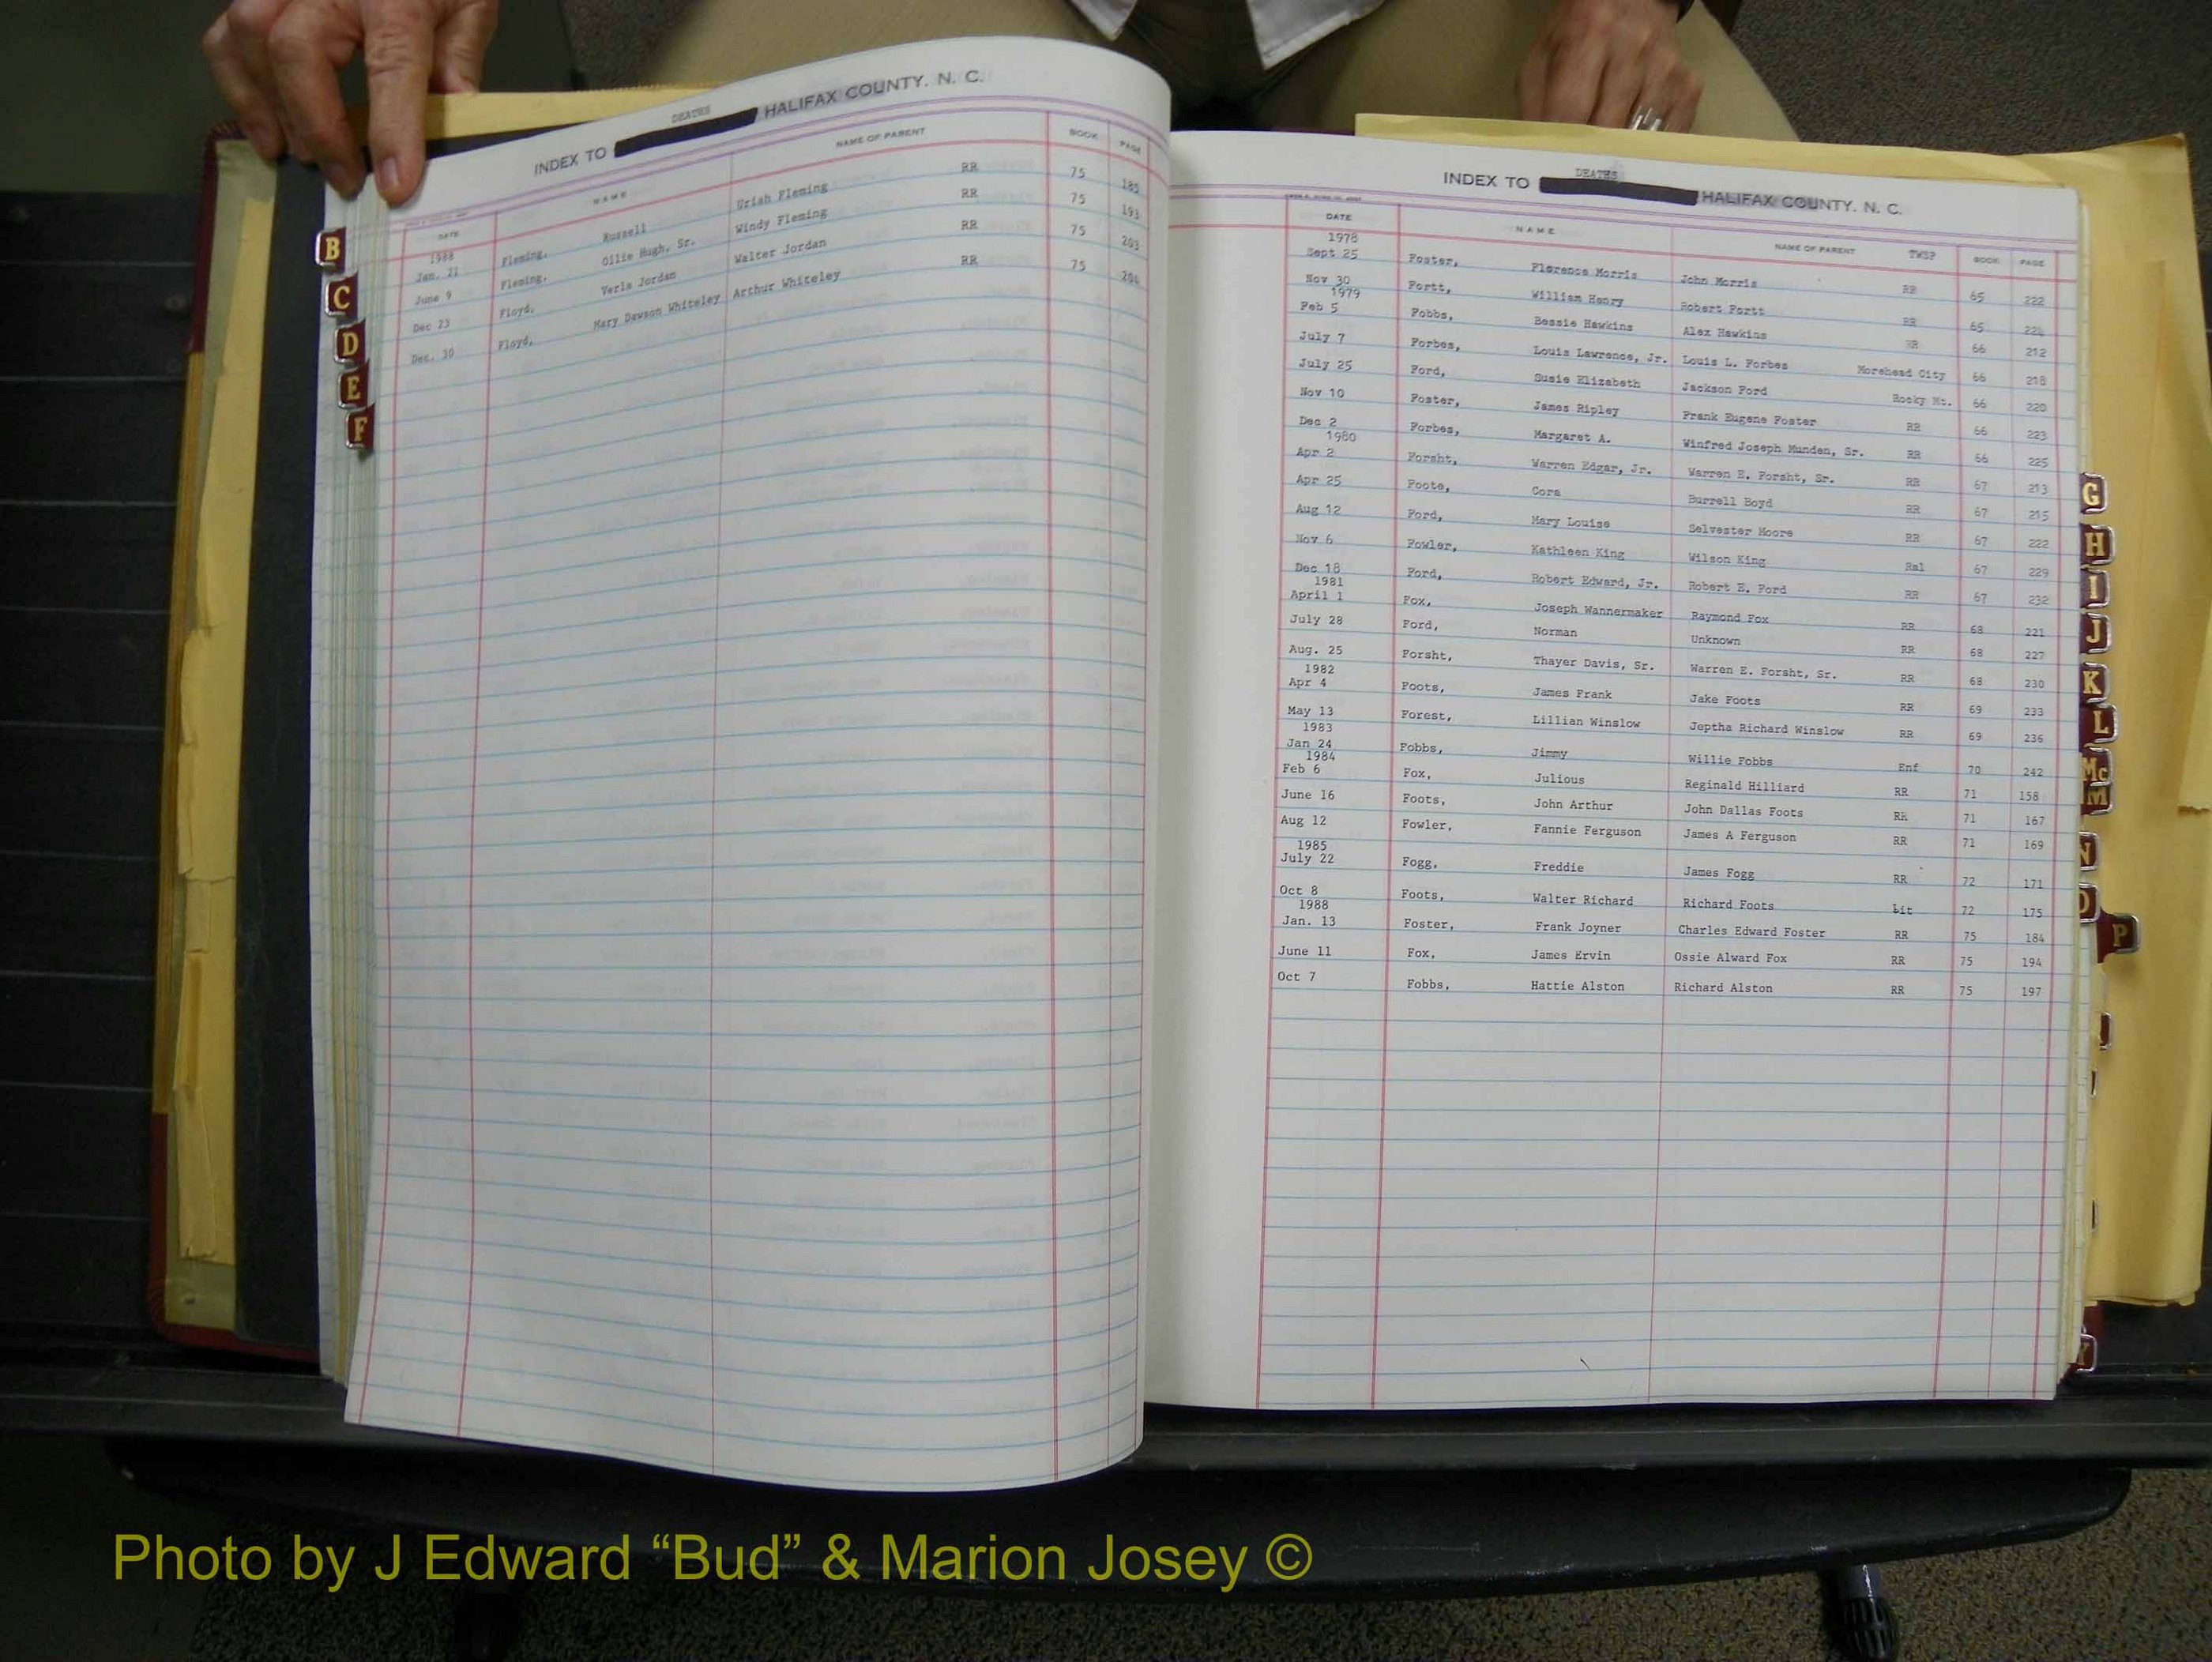 DEATHS
INDEX TO HALIFAX COUNTY. N. C.
DATE NAME NAME OF PARENT BOOK PAGE
1988
Jan. 21 Fleming, Russell Uriah Fleming RR 75 185
June 9 Fleming, Ollie Hugh, Sr. Windy Fleming RR 75 193
Dec 23 Floyd, Verla Jordan Walter Jordan RR 75 203
Dec. 30 Floyd, Mary Dawson Whiteley Arthur Whiteley RR 75 204
B
C
D
E
F
DEATHS
INDEX TO HALIFAX COUNTY. N. C.
DATE NAME NAME OF PARENT TWSP BOOK PAGE
1978
Sept 25 Foster, Florence Morris John Morris RR 65 222
Nov 30 Fortt, William Henry Robert Fortt RR 65
1979
Feb 5 Fobbs, Bessie Hawkins Alex Hawkins RR 66 212
July 7 Forbes, Louis Lawrence, Jr. Louis L. Forbes Morehead City 66 218
July 25 Ford, Susie Elizabeth Jackson Ford Rocky Mt. 66 220
Nov 10 Foster, James Ripley Frank Eugene Foster RR 66 223
Dec 2 Forbes, Margaret A. Winfred Joseph Munden, Sr. RR 66 225
1980
Apr 2 Forsht, Warren Edgar, Jr. Warren E. Forsht, Sr. RR 67 213
Apr 25 Foote, Cora Burrell Boyd RR 67 215
Aug 12 Ford, Mary Louise Selvester Moore RR 67 222
Nov 6 Fowler, Kathleen King Wilson King Ral 67 229
Dec 18 Ford, Robert Edward, Jr. Robert E. Ford RR 67 232
1981
April 1 Fox, Joseph Wannermaker Raymond Fox RR 68 221
July 28 Ford, Norman Unknown RR 68 227
Aug. 25 Forsht, Thayer Davis, Sr. Warren E. Forsht, Sr. RR 68 230
1982
Apr 4 Foots, James Frank Jake Foots RR 69 233
May 13 Forest, Lillian Winslow Jeptha Richard Winslow RR 69 236
1983
Jan 24 Fobbs, Jimmy Willie Fobbs Enf 70 242
1984
Feb 6 Fox, Julious Reginald Hilliard RR 71 158
June 16 Foots, John Arthur John Dallas Foots RR 71 167
Aug 12 Fowler, Fannie Ferguson James A Ferguson RR 71 169
1985
July 22 Fogg, Freddie James Fogg RR 72 171
Oct 8 Foots, Walter Richard Richard Foots Lit 72 175
1988
Jan. 13 Foster, Frank Joyner Charles Edward Foster RR 75 184
June 11 Fox, James Ervin Ossie Alward Fox RR 75 194
Oct 7 Fobbs, Hattie Alston Richard Alston RR 75 197
G
H
I
J
K
L
Mc
M
N
O
P
Photo by J Edward “Bud” & Marion Josey ©